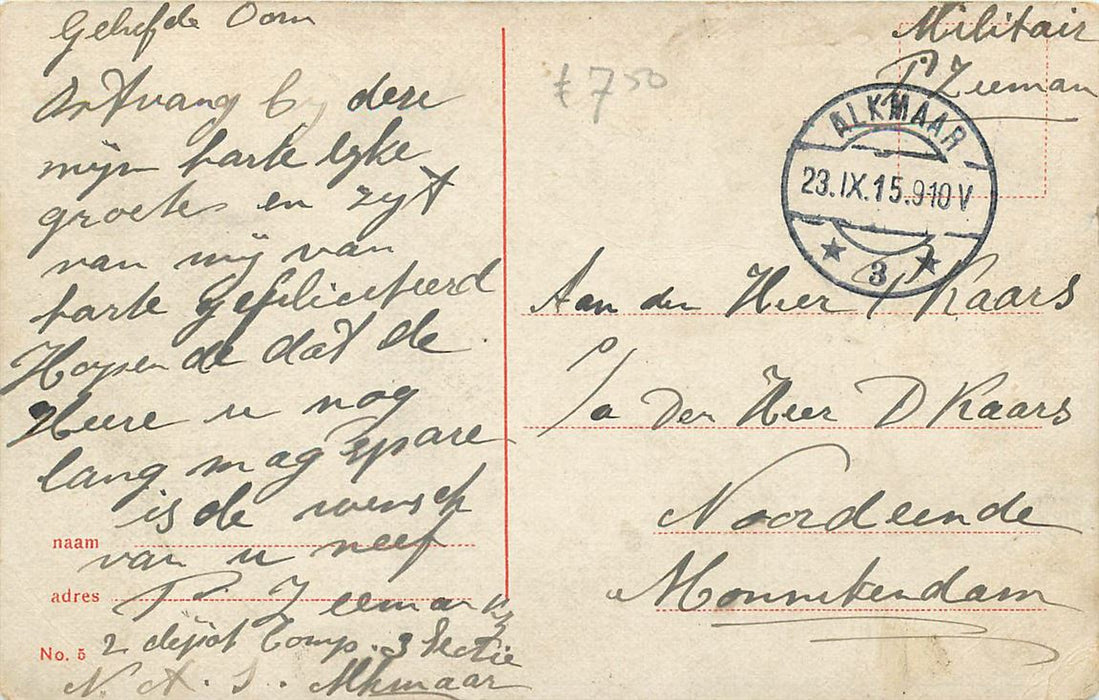 Geliefde Oom
Ontvang by dese
mijn harte lyke
groete en zyt
van mij van
harte gefiliciteerd
Hoopen de dat de
Heere u nog
lang mag spare
is de wensch
van u neef
P. Zeeman
2 depot Comp. 3 Sectie
N. A. S. Alkmaar
naam
adres
No. 5
£ 7 50
Militair
P Zeeman
ALKMAAR
23.IX.15.9-10V
3
Aan den Heer P Kaars
P/a Den Heer D Kaars
Noordeende
Monnikendam